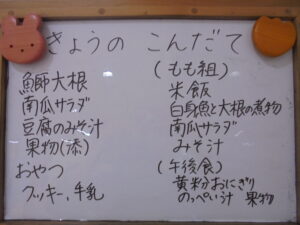 きょうの こんだて
魚師大根
南瓜サラダ
豆腐のみそ汁
果物
おやつ
クッキー、牛乳
(もも組)
米飯
白身魚と大根の煮物
南瓜サラダ
みそ汁
(午後食)
黄粉おにぎり
のっぺい汁 果物